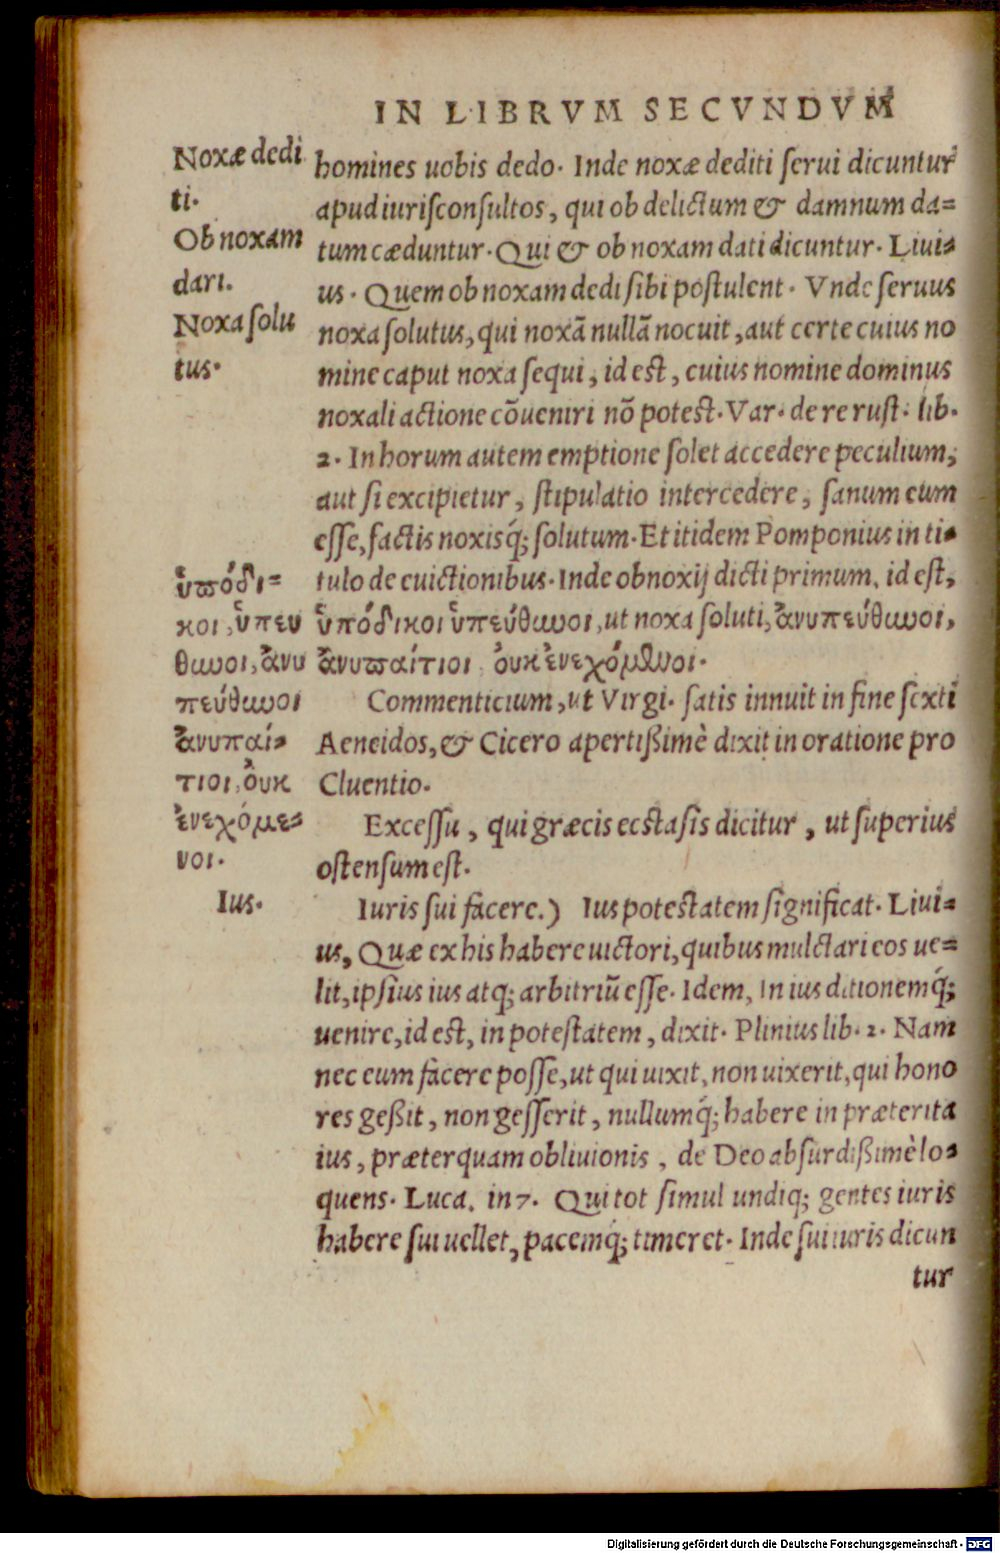 IN LIBRVM SECVNDVM
Noxæ dedi
ti.
Ob noxam
dari.
Noxa solu
tus.
homines uobis dedo. Inde noxæ dediti serui dicuntur
apud iurisconsultos, qui ob delictum & damnum da=
tum cæduntur. Qui & ob noxam dati dicuntur. Liui=
us. Quem ob noxam dedi sibi postulent. Vnde seruus
noxa solutus, qui noxã nullã nocuit, aut certe cuius no
mine caput noxa sequi, id est, cuius nomine dominus
noxali actione cõueniri nõ potest. Var. de re rust. lib.
2. In horum autem emptione solet accedere peculium,
aut si excipietur, stipulatio intercedere, sanum eum
esse, factis noxisq́; solutum. Et itidem Pomponius in ti=
tulo de euictionibus. Inde obnoxij dicti primum, id est,
ὑπόδικοι ὑπεύθωνοι, ut noxa soluti, ἀνυπεύθωνοι,
ἀνυπαίτιοι οὐκ ἐνεχόμενοι.
ὑπόδι=
κοι, ὑπευ
θωνοι, ἀνυ
πεύθωνοι
ἀνυπαί=
τιοι, οὐκ
ἐνεχόμε=
νοι.
Commenticium, ut Virgi. satis innuit in fine sexti
Aeneidos, & Cicero apertißimè dixit in oratione pro
Cluentio.
Excessu, qui græcis ecstasis dicitur, ut superius
ostensum est.
Ius.
Iuris sui facere.) Ius potestatem significat. Liui=
us, Quæ ex his habere uictori, quibus mulctari eos ue=
lit, ipsius ius atq; arbitriũ esse. Idem, In ius ditionemq́;
uenire, id est, in potestatem, dixit. Plinius lib. 2. Nam
nec eum facere posse, ut qui uixit, non uixerit, qui hono
res geßit, non gesserit, nullumq́; habere in præterita
ius, præterquam obliuionis, de Deo absurdißimè lo=
quens. Luca. in 7. Qui tot simul undiq; gentes iuris
habere sui uellet, pacemq́; timeret. Inde sui iuris dicun
tur
Digitalisierung gefördert durch die Deutsche Forschungsgemeinschaft - DFG